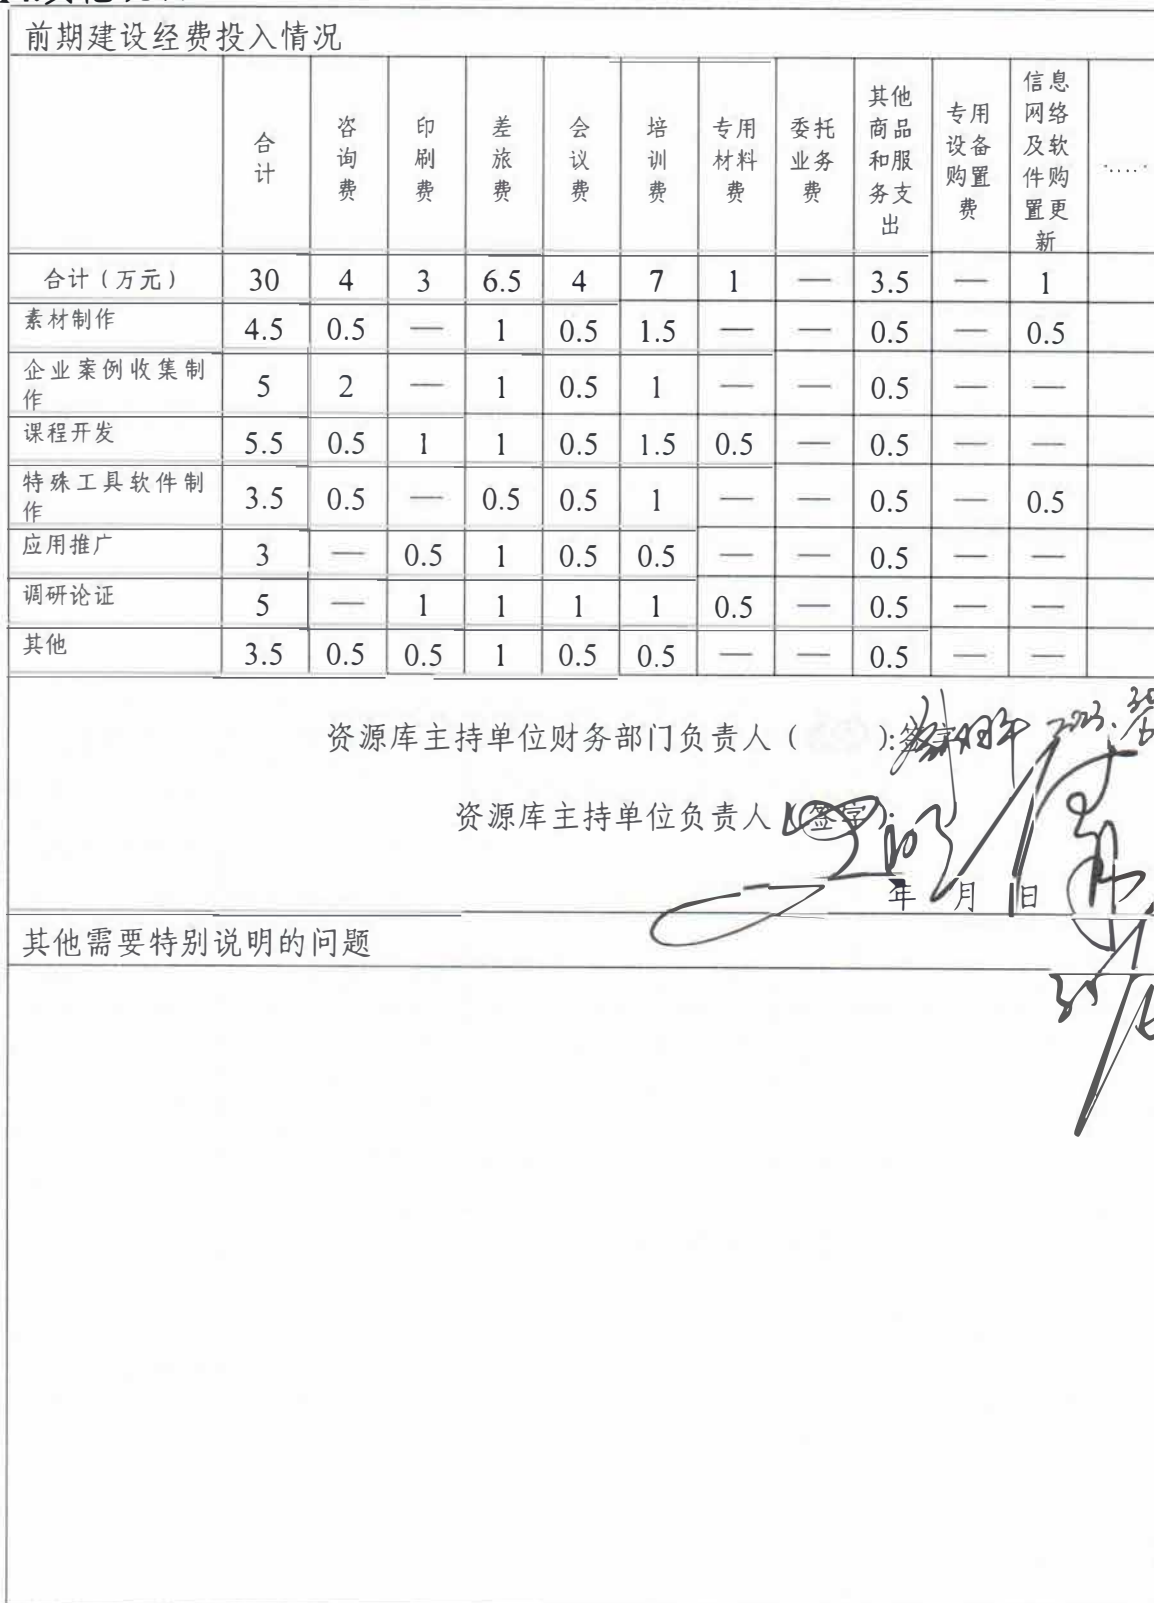 前期建设经费投入情况
合计 咨询费 印刷费 差旅费 会议费 培训费 专用材料费 委托业务费 其他商品和服务支出 专用设备购置费 信息网络及软件购置更新 ......
合计（万元） 30 4 3 6.5 4 7 1 — 3.5 — 1
素材制作 4.5 0.5 — 1 0.5 1.5 — — 0.5 — 0.5
企业案例收集制作 5 2 — 1 0.5 1 — — 0.5 — —
课程开发 5.5 0.5 1 1 0.5 1.5 0.5 — 0.5 — —
特殊工具软件制作 3.5 0.5 — 0.5 0.5 1 — — 0.5 — 0.5
应用推广 3 — 0.5 1 0.5 0.5 — — 0.5 — —
调研论证 5 — 1 1 1 1 0.5 — 0.5 — —
其他 3.5 0.5 0.5 1 0.5 0.5 — — 0.5 — —
资源库主持单位财务部门负责人（ ）:签字
资源库主持单位负责人（签字）:
年 月 日
其他需要特别说明的问题